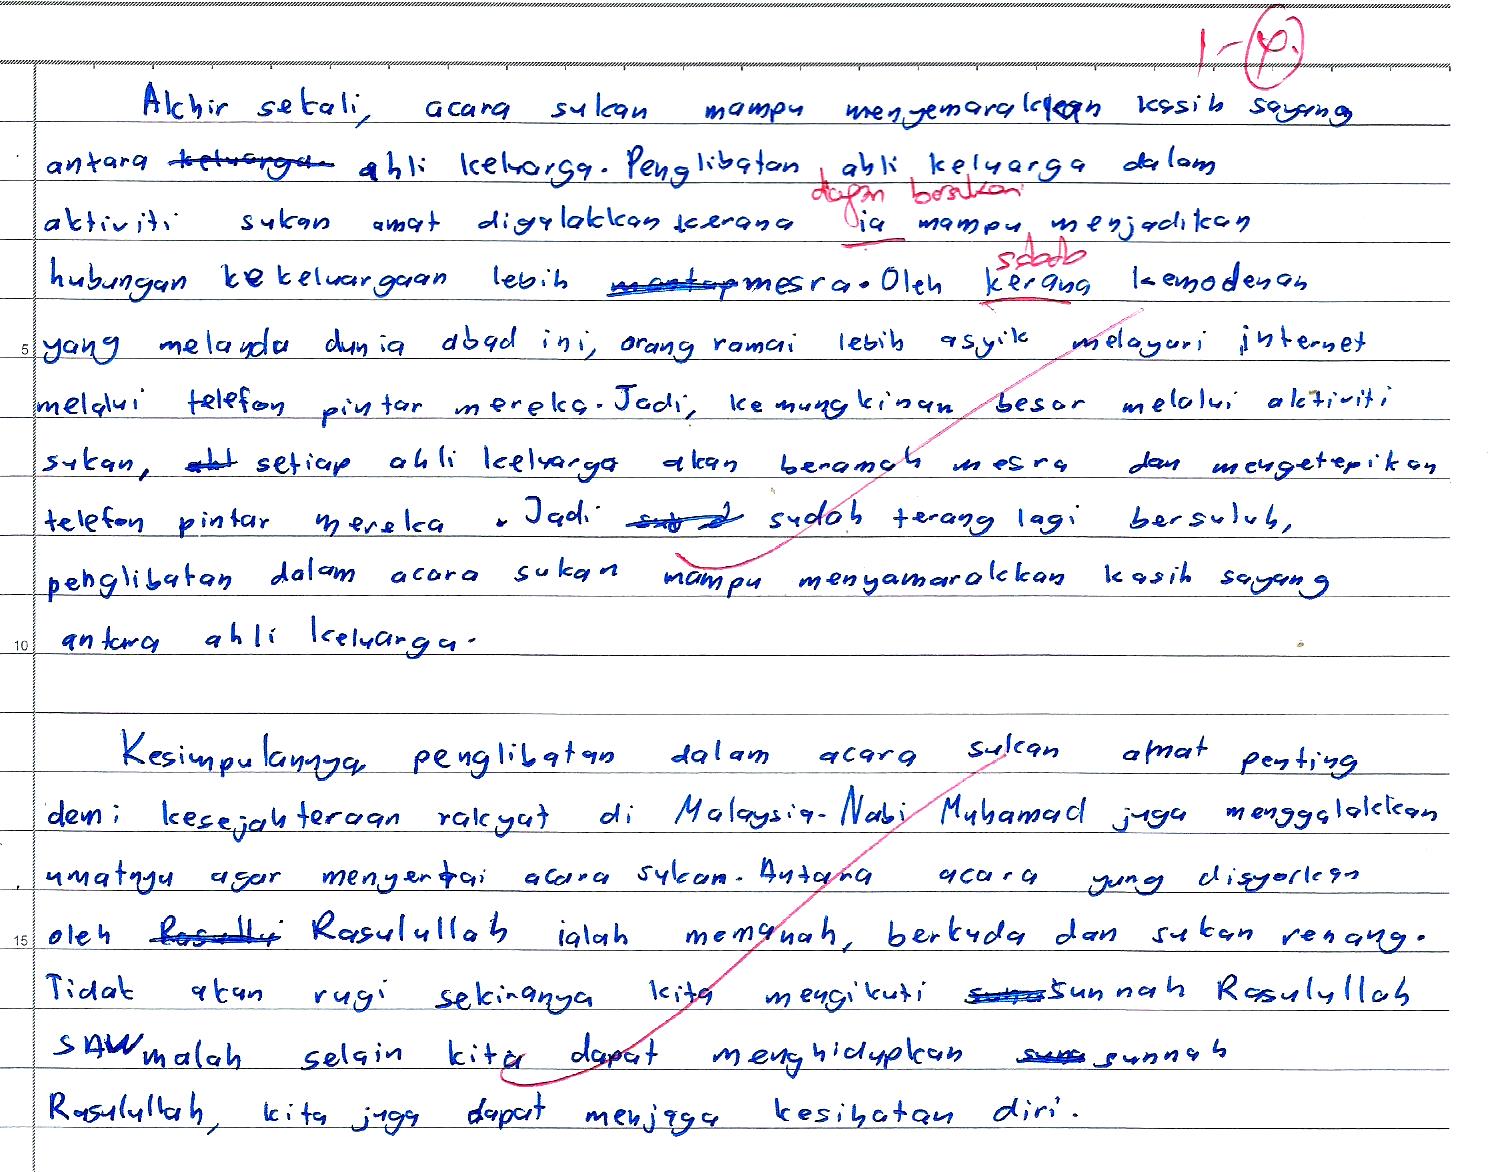 1-4.
Akhir sekali, acara sukan mampu menyemarakkan kasih sayang
antara keluarga ahli keluarga. Penglibatan ahli keluarga dalam
dgn bersukan
aktiviti sukan amat digalakkan kerana ia mampu menjadikan
sebab
hubungan kekeluargaan lebih mantap mesra. Oleh kerana kemodenan
5 yang melanda dunia abad ini, orang ramai lebih asyik melayari internet
melalui telefon pintar mereka. Jadi, kemungkinan besar melalui aktiviti
sukan, ahl setiap ahli keluarga akan beramah mesra dan mengetepikan
telefon pintar mereka. Jadi sudah terang lagi bersuluh,
penglibatan dalam acara sukan mampu menyamarakkan kasih sayang
10 antara ahli keluarga.
Kesimpulannya, penglibatan dalam acara sukan amat penting
demi kesejahteraan rakyat di Malaysia. Nabi Muhamad juga menggalakkan
umatnya agar menyertai acara sukan. Antara acara yang disyorkan
15 oleh Rasulullah ialah memanah, berkuda dan sukan renang.
Tidak akan rugi sekiranya kita mengikuti sunnah Rasulullah
SAW malah selain kita dapat menghidupkan sunnah
Rasulullah, kita juga dapat menjaga kesihatan diri.